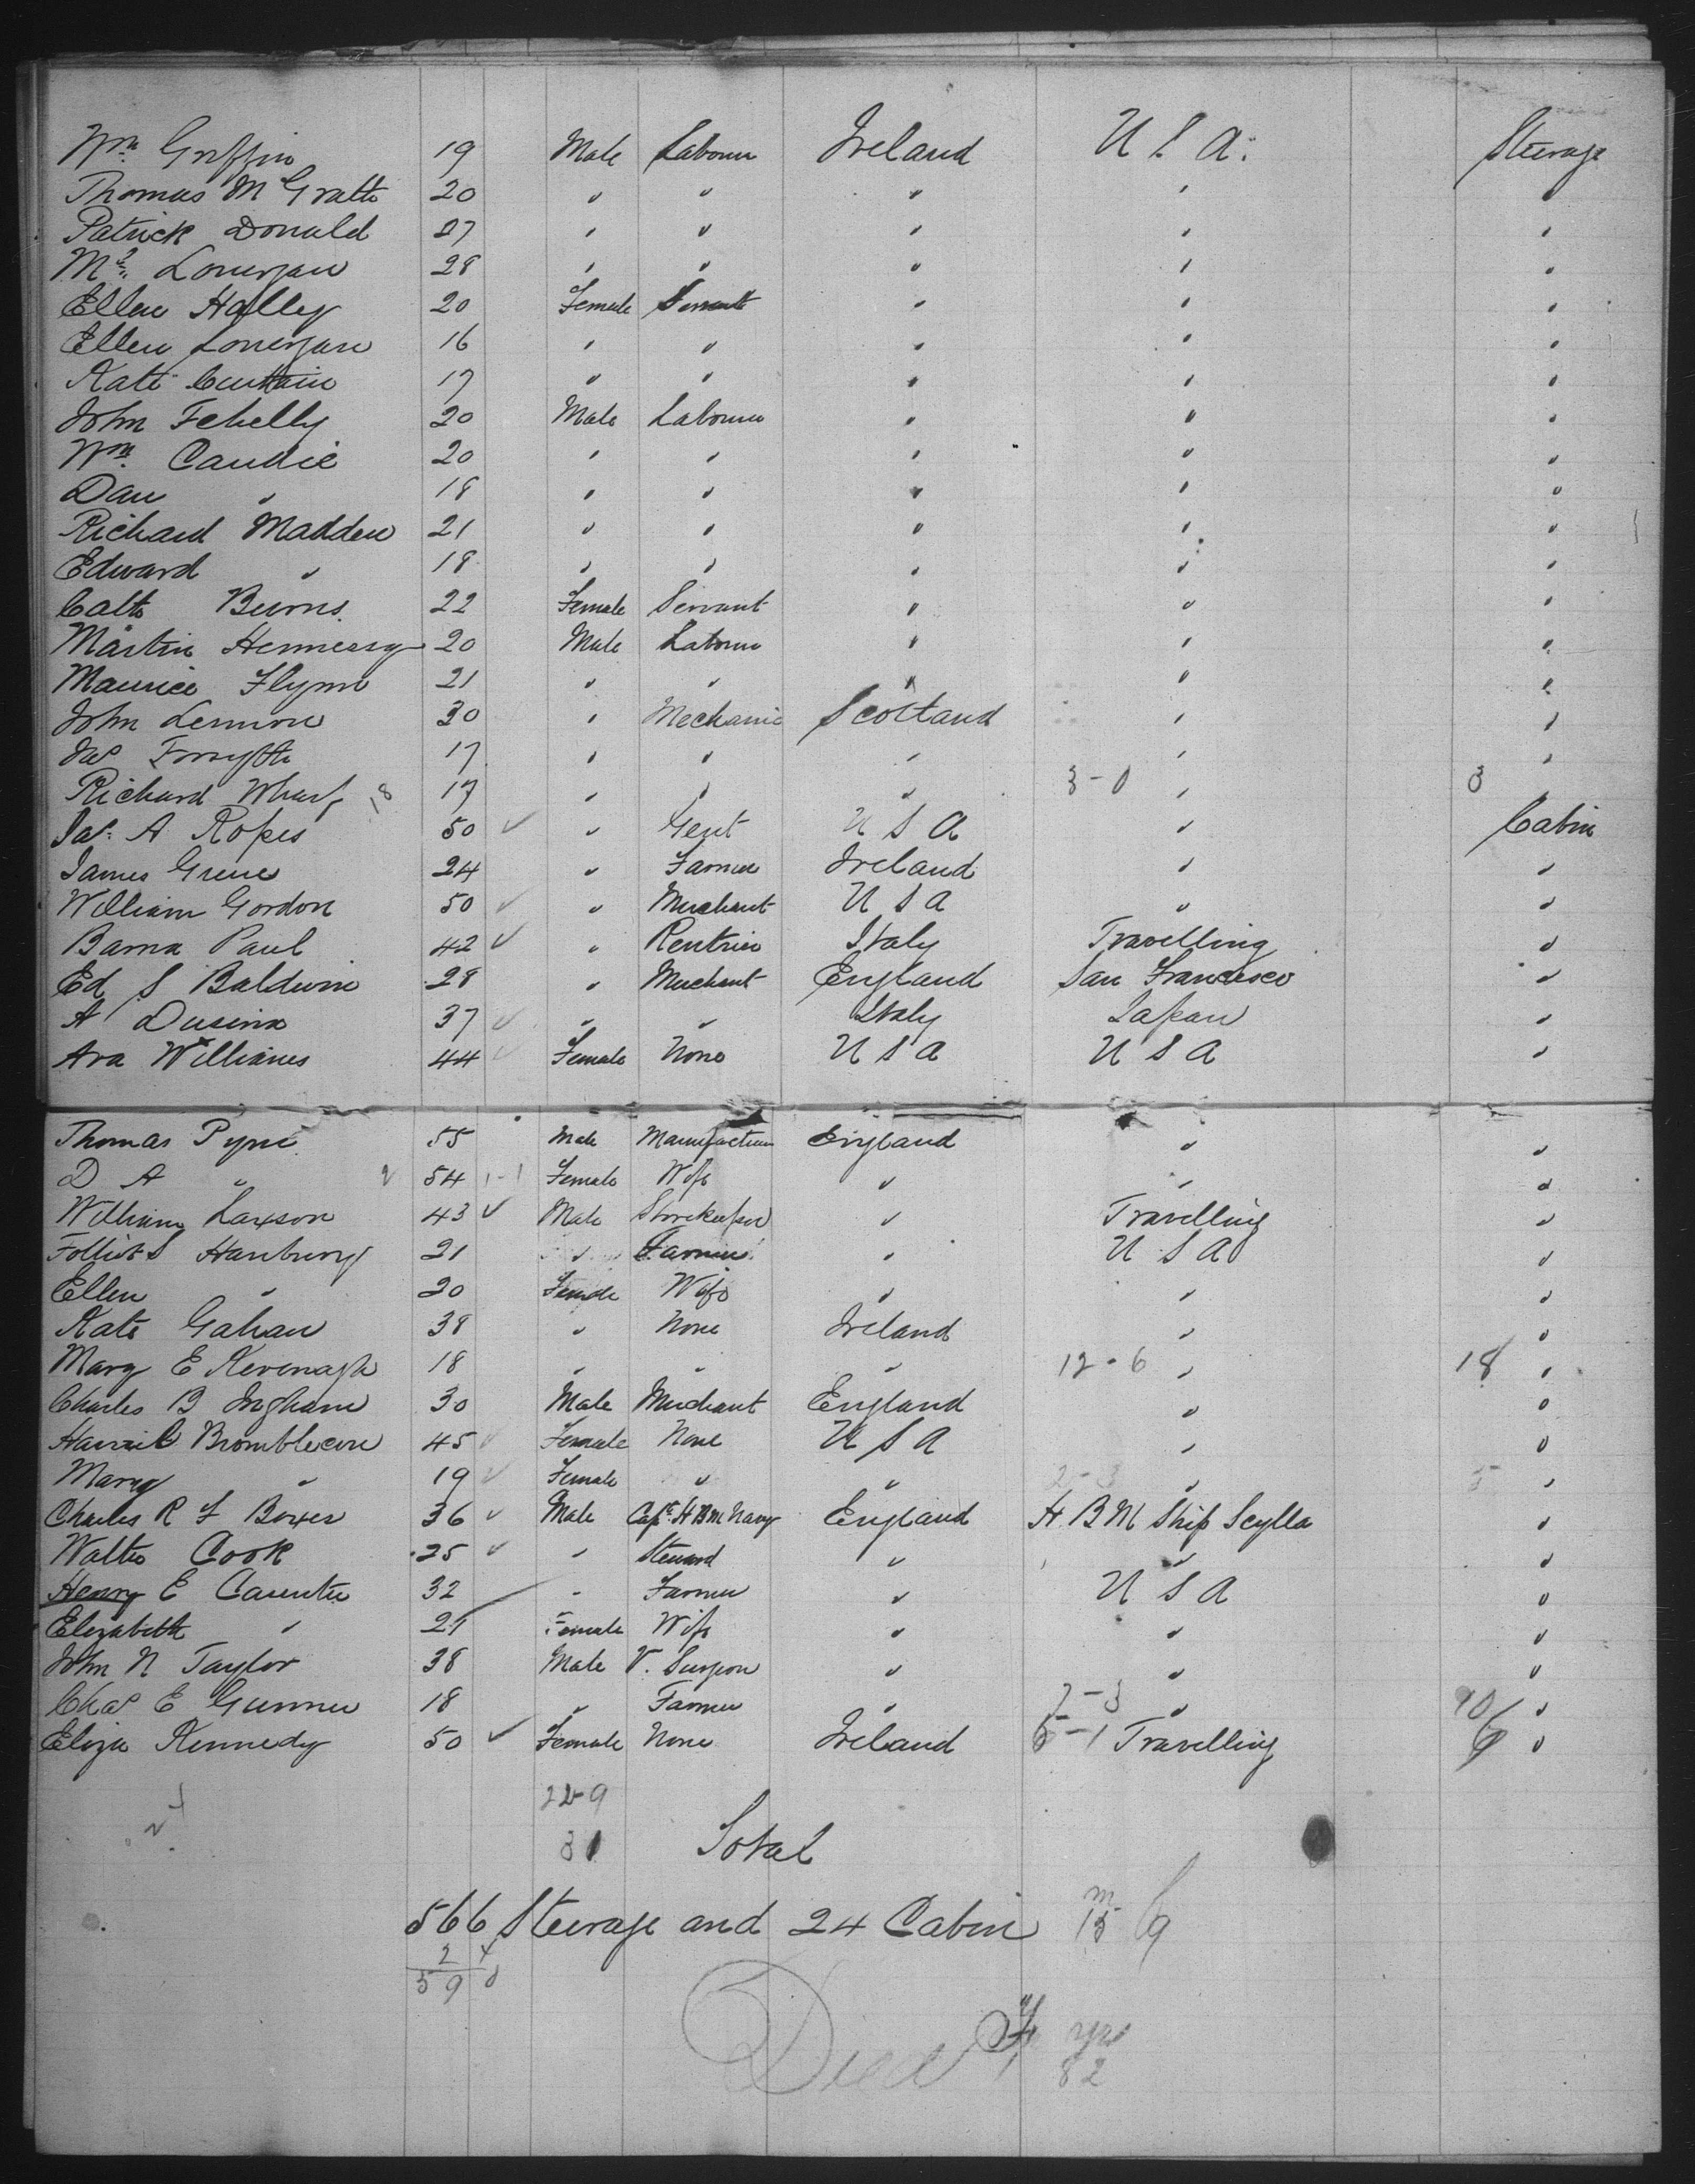 Wm. Griffin 19 Male Labourer Ireland U. S. A. Steerage
Thomas McGrath 20 " " " " "
Patrick Donald 27 " " " " "
Lonergan 28 " " " " "
Ellen Halley 20 Female Servant " " "
Ellen Lonergan 16 " " " " "
Kate Curtain 17 " " " " "
John Fehelly 20 Male Labourer " " "
Wm. Candie 20 " " " " "
Dan " 18 " " " " "
Richard Madden 21 " " " " "
Edward " 18 " " " " "
Cath Burns. 22 Female Servant " " "
Martin Hennessy 20 Male Labourer " " "
Maurice Flynn 21 " " " " "
John Lennon 30 " Mechanic Scotland " "
Jas Forsyth 17 " " " " "
Richard Wharf 18 17 " " " 3-0 " 3
Jas. A Ropes 50 ✓ " Gent U S A " Cabin
James Greene 24 " Farmer Ireland " "
William Gordon 50 ✓ " Merchant U S A " "
Barna Paul 42 ✓ " Rentier Italy Travelling "
Ed S Baldwin 28 " Merchant England San Francisco "
A Dusina 37 ✓ " " Italy Japan "
Ava Williams 44 ✓ Female None U S A U S A "
Thomas Pyne 55 Male Manufacturer England " "
D A " 2 54 1-1 Female Wife " " "
William Laxson 43 ✓ Male Storekeeper " Travelling "
Folliot S Hanbury 21 " Farmer " U S A "
Ellen " 20 Female Wife " " "
Kate Gahan 38 " None Ireland " "
Mary E Kevenagh 18 " " " 12-6 " 18 "
Charles B Ingham 30 Male Merchant England " "
Harriet Bromblecom 45 ✓ Female None U S A " "
Mary " 19 ✓ Female " " 2-3 " 5 "
Charles R F Boxer 36 ✓ Male Capt. H B M Navy England H B M Ship Scylla "
Walter Cook 25 ✓ " Steward " " "
Henry E Carenter 32 " Farmer " U S A "
Elizabeth " 21 Female Wife " " "
John N Taylor 38 Male V. Surgeon " " "
Chas E Gunner 18 " Farmer " 7-3 " 10 "
Eliza Kennedy 50 ✓ Female None Ireland 5-1 Travelling 6 "
22-9
31 Total
566 Steerage and 24 Cabin 15 9
2 4
59 0
Died F yrs
1 82